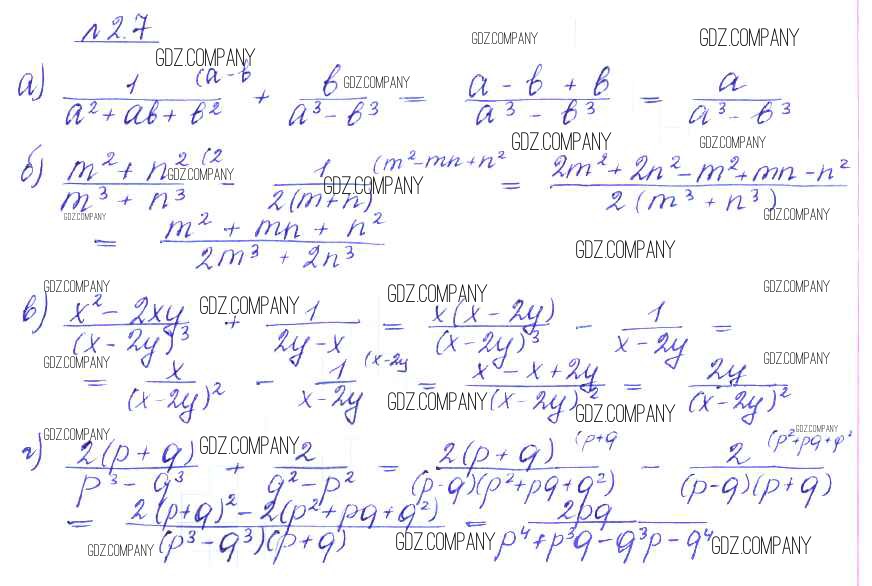 №2.7
GDZ.COMPANY GDZ.COMPANY GDZ.COMPANY
а) 1/(a² + ab + b²) (a - b + b/(a³ - b³) = (a - b + b)/(a³ - b³) = a/(a³ - b³)
GDZ.COMPANY
GDZ.COMPANY GDZ.COMPANY
б) (m² + n²)/(m³ + n³) (2 - 1/(2(m+n)) (m² - mn + n² = (2m² + 2n² - m² + mn - n²)/(2(m³ + n³))
GDZ.COMPANY GDZ.COMPANY
GDZ.COMPANY GDZ.COMPANY
= (m² + mn + n²)/(2m³ + 2n³)
GDZ.COMPANY
GDZ.COMPANY GDZ.COMPANY GDZ.COMPANY GDZ.COMPANY
в) (x² - 2xy)/(x - 2y)³ + 1/(2y - x) = x(x - 2y)/(x - 2y)³ - 1/(x - 2y) =
GDZ.COMPANY GDZ.COMPANY
= x/(x - 2y)² - 1/(x - 2y) (x - 2y = (x - x + 2y)/(x - 2y)² = 2y/(x - 2y)²
GDZ.COMPANY GDZ.COMPANY
GDZ.COMPANY GDZ.COMPANY GDZ.COMPANY
г) 2(p + q)/(p³ - q³) + 2/(q² - p²) = 2(p + q)/((p - q)(p² + pq + q²)) (p + q - 2/((p - q)(p + q)) (p² + pq + q²
= (2(p + q)² - 2(p² + pq + q²))/((p³ - q³)(p + q)) = 2pq/(p⁴ + p³q - q³p - q⁴)
GDZ.COMPANY GDZ.COMPANY GDZ.COMPANY